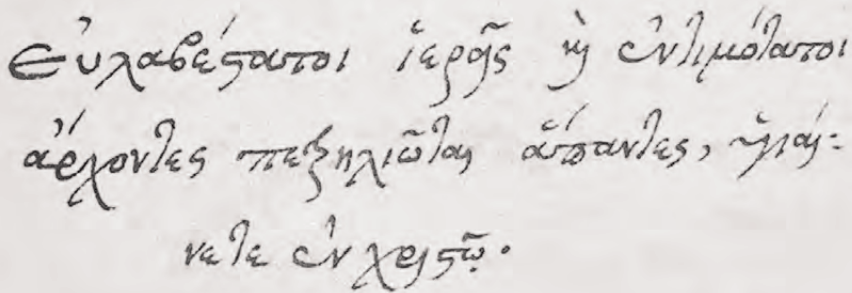 Εὐλαβέστατοι ἱερεῖς καὶ ἐντιμότατοι
ἄρχοντες πεξηλιῶται ἅπαντες, ὑγιαί:
νετε ἐν χριστῷ.